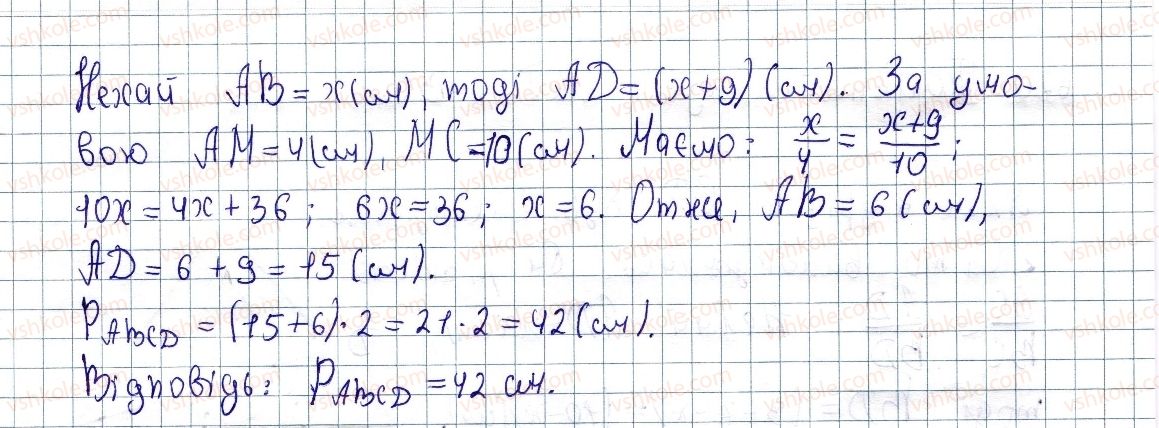 Нехай AB = x(см), тоді AD = (x+9) (см). За умо-
вою AM = 4(см), MC = 10(см). Маємо: x/4 = x+9/10;
10x = 4x + 36; 6x = 36; x = 6. Отже, AB = 6 (см),
AD = 6 + 9 = 15 (см).
P_ABCD = (15+6)·2 = 21·2 = 42 (см).
Відповідь: P_ABCD = 42 см.
vshkole.com